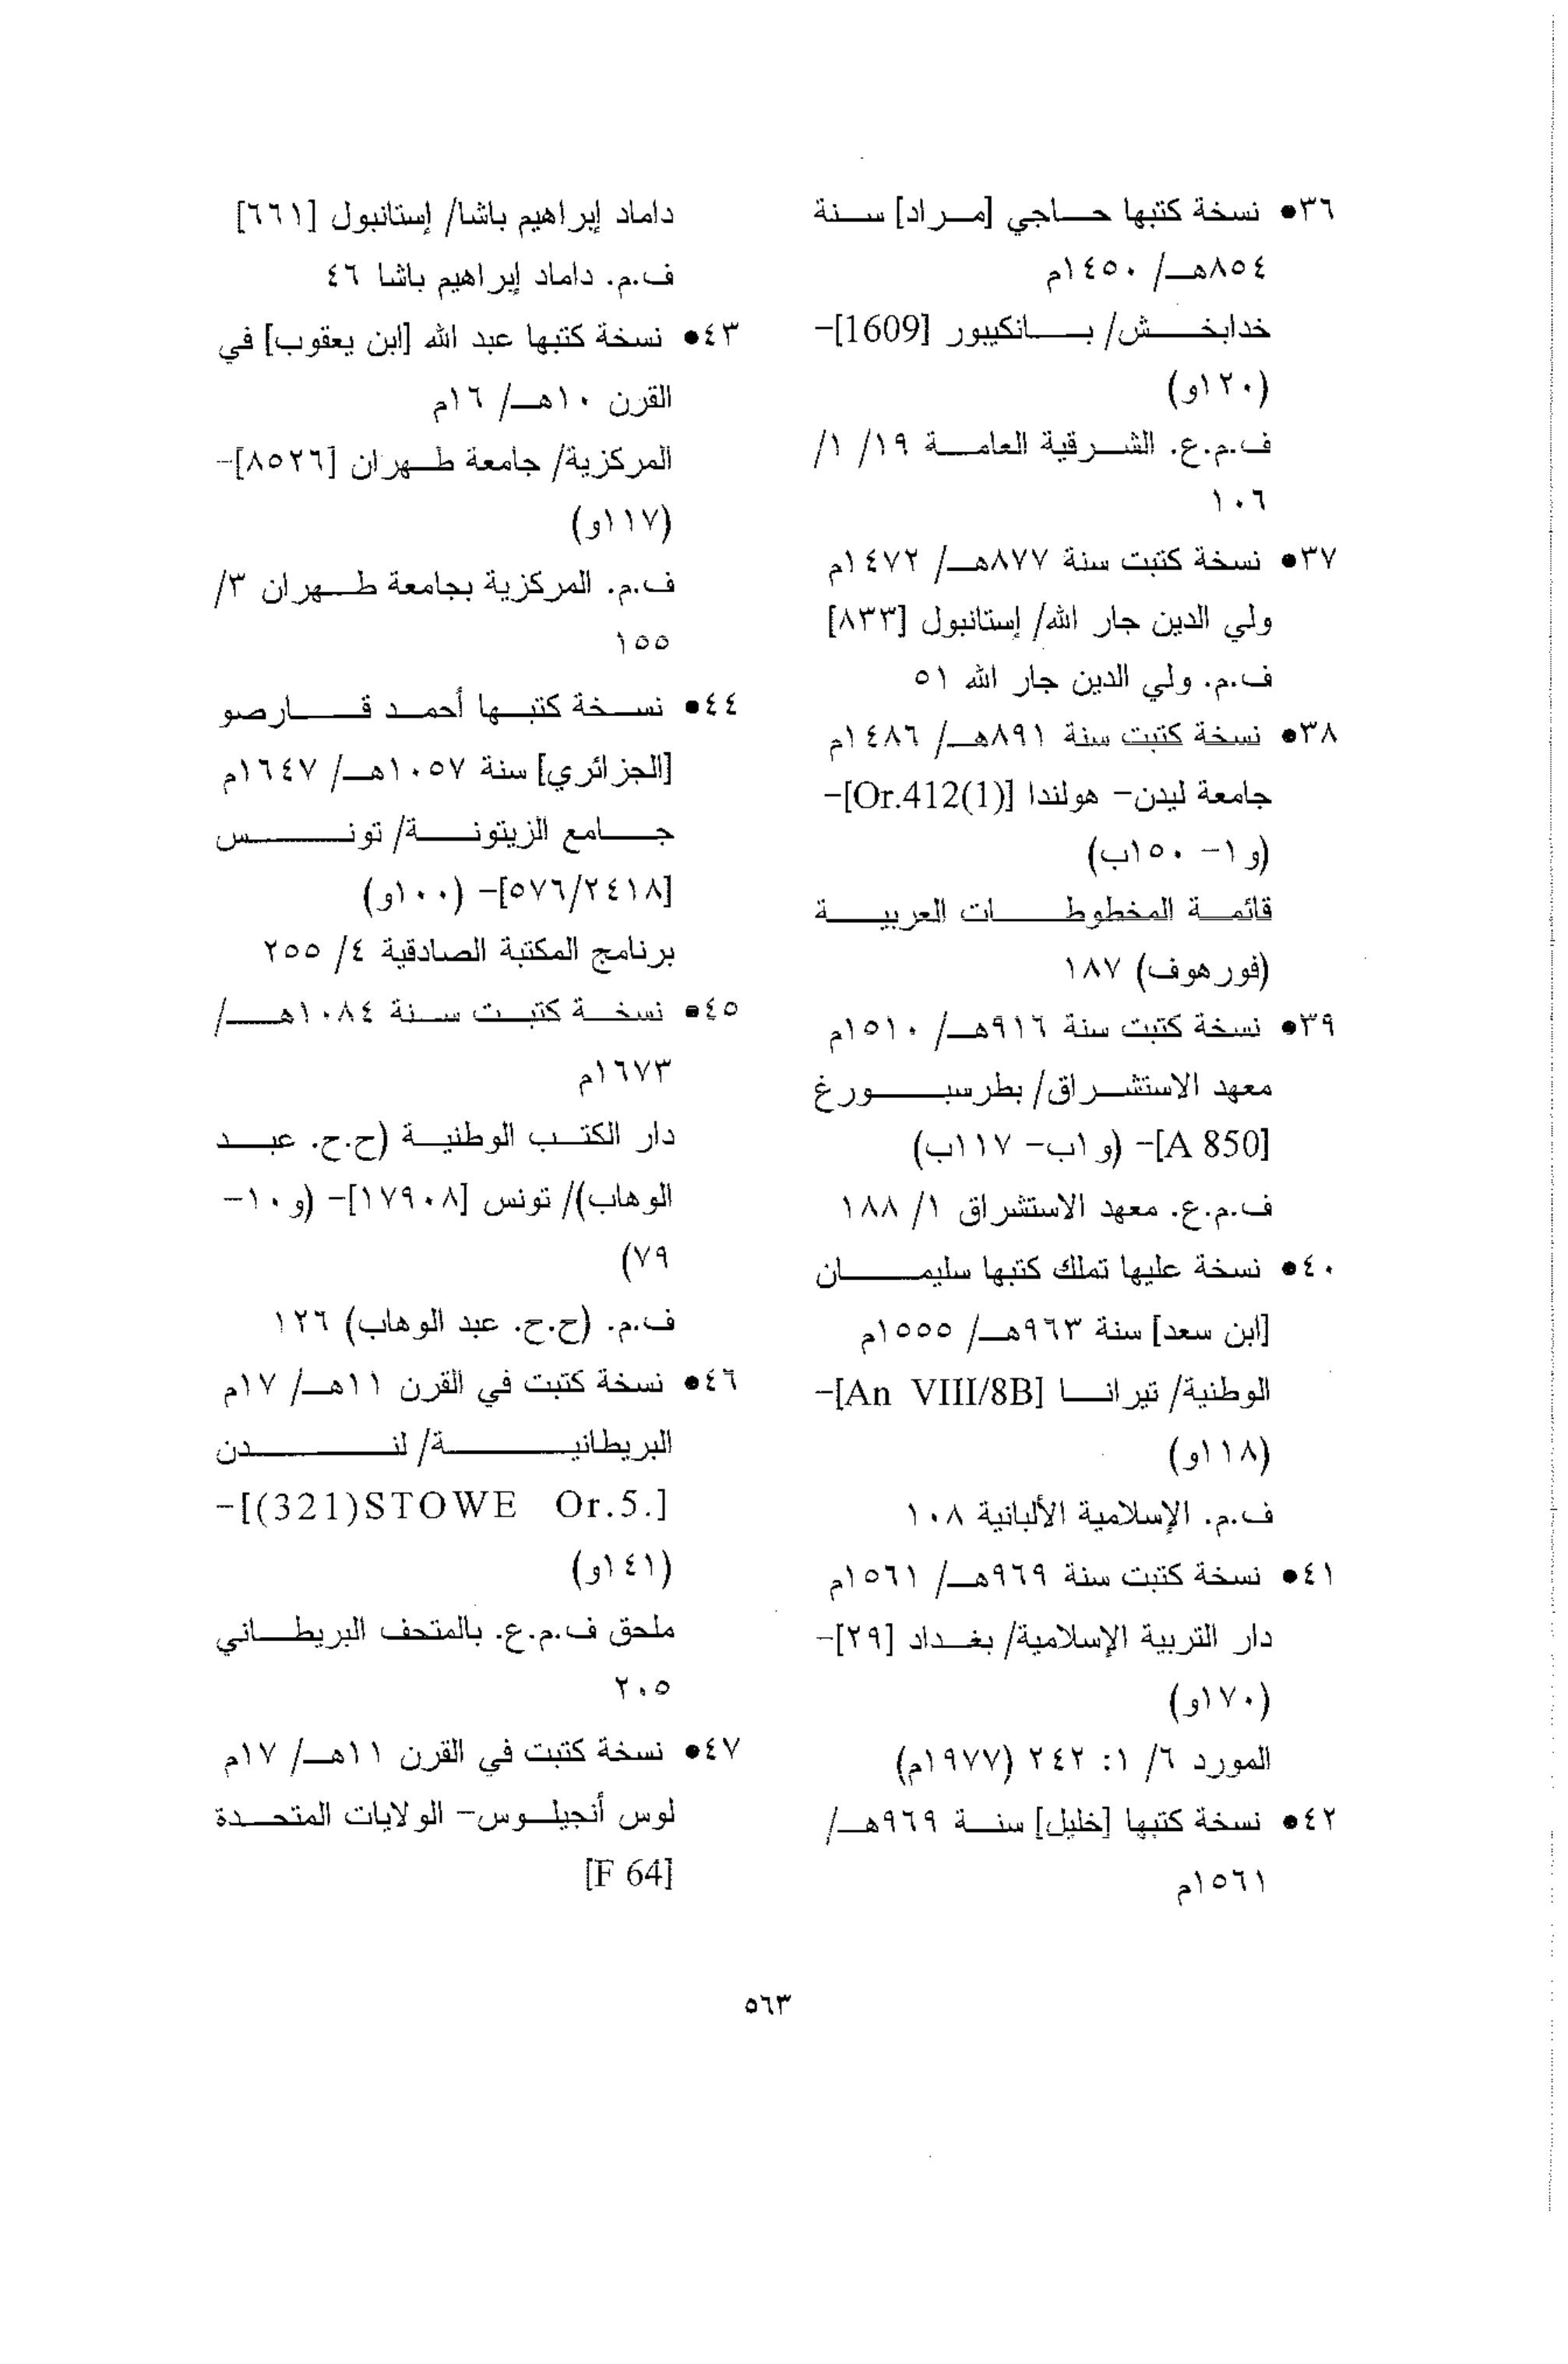 ٣٦• نسخة كتبها حاجي [مراد] سنة
٨٥٤هـ/ ١٤٥٠م
خدابخش/ بانكيبور [1609]-
(١٢٠و)
ف.م.ع. الشرقية العامة ١٩/ ١/
١٠٦
٣٧• نسخة كتبت سنة ٨٧٧هـ/ ١٤٧٢م
ولي الدين جار الله/ إستانبول [٨٣٣]
ف.م. ولي الدين جار الله ٥١
٣٨• نسخة كتبت سنة ٨٩١هـ/ ١٤٨٦م
جامعة ليدن- هولندا [Or.412(1)]-
(و١- ١٥٠ب)
قائمة المخطوطات العربية
(فورهوف) ١٨٧
٣٩• نسخة كتبت سنة ٩١٦هـ/ ١٥١٠م
معهد الاستشراق/ بطرسبورغ
[A 850]- (و١ب- ١١٧ب)
ف.م.ع. معهد الاستشراق ١/ ١٨٨
٤٠• نسخة عليها تملك كتبها سليمان
[ابن سعد] سنة ٩٦٣هـ/ ١٥٥٥م
الوطنية/ تيرانا [An VIII/8B]-
(١١٨و)
ف.م. الإسلامية الألبانية ١٠٨
٤١• نسخة كتبت سنة ٩٦٩هـ/ ١٥٦١م
دار التربية الإسلامية/ بغداد [٢٩]-
(١٧٠و)
المورد ٦/ ١: ٢٤٢ (١٩٧٧م)
٤٢• نسخة كتبها [خليل] سنة ٩٦٩هـ/
١٥٦١م
داماد إبراهيم باشا/ إستانبول [٦٦١]
ف.م. داماد إبراهيم باشا ٤٦
٤٣• نسخة كتبها عبد الله [ابن يعقوب] في
القرن ١٠هـ/ ١٦م
المركزية/ جامعة طهران [٨٥٢٦]-
(١١٧و)
ف.م. المركزية بجامعة طهران ٣/
١٥٥
٤٤• نسخة كتبها أحمد قارصو
[الجزائري] سنة ١٠٥٧هـ/ ١٦٤٧م
جامع الزيتونة/ تونس
[٥٧٦/٢٤١٨]- (١٠٠و)
برنامج المكتبة الصادقية ٤/ ٢٥٥
٤٥• نسخة كتبت سنة ١٠٨٤هـ/
١٦٧٣م
دار الكتب الوطنية (ح.ح. عبد
الوهاب)/ تونس [١٧٩٠٨]- (و١٠-
٧٩)
ف.م. (ح.ح. عبد الوهاب) ١٢٦
٤٦• نسخة كتبت في القرن ١١هـ/ ١٧م
البريطانية/ لندن
[(321)STOWE Or.5.]-
(١٤١و)
ملحق ف.م.ع. بالمتحف البريطاني
٢٠٥
٤٧• نسخة كتبت في القرن ١١هـ/ ١٧م
لوس أنجيلوس- الولايات المتحدة
[F 64]
٥٦٣